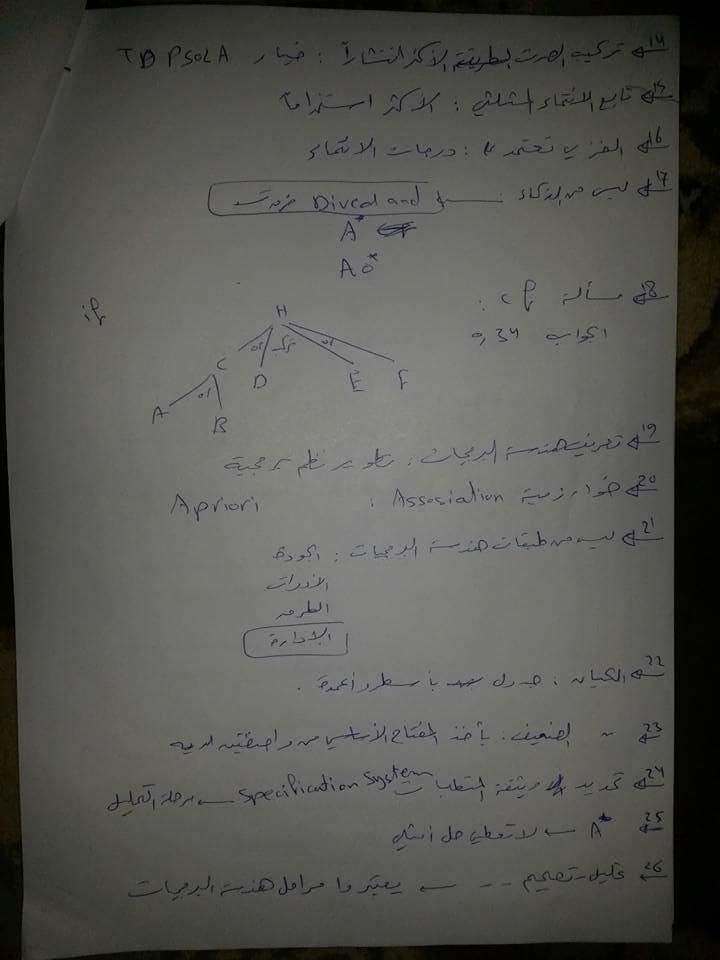 14 تركيب الصوت بطريقة الأكثر انتشاراً : خيار TD PSOLA
15 تابع الانتماء المثلثي : الأكثر استخداماً
16 الفزي تعتمد : درجات الانتماء
17 ليس من الذكاء Dived and
A*
AO*
18 مسألة cf :
الجواب 0,34
if
H
or or
C D E F
or
A B
19 تعريف هندسة البرمجيات : تطوير نظم برمجية
20 خوارزمية Assosiation : Apriori
21 ليس من طبقات هندسة البرمجيات : الجودة
الأدوات
الطرق
الإدارة
22 الكيان : جدول بأسطر وأعمدة .
23 " الضعيف : يأخذ المفتاح الأساسي من
24 تحديد وثيقة المتطلبات Specification System مرحلة التحليل
25 A* لا تعطي حل أمثلي
26 تحليل - تصميم - - يعتبروا مراحل هندسة البرمجيات